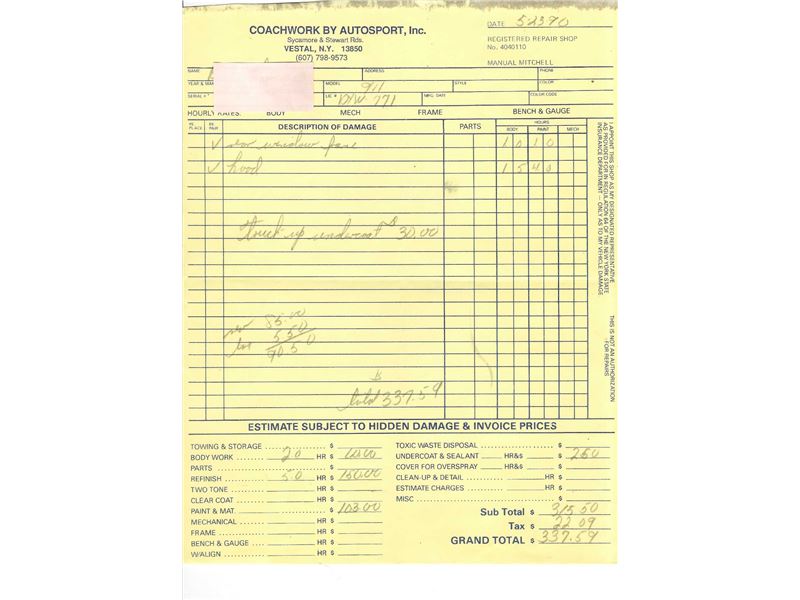 COACHWORK BY AUTOSPORT, Inc.
Sycamore & Stewart Rds.
VESTAL, N.Y. 13850
(607) 798-9573
DATE 52390
REGISTERED REPAIR SHOP
No. 4040110
MANUAL MITCHELL
NAME ADDRESS PHONE
YEAR & MAKE MODEL 911 STYLE COLOR
SERIAL # LIC # 771 MFG. DATE COLOR CODE
HOURLY RATES: BODY MECH FRAME BENCH & GAUGE
RE PLACE RE PAIR DESCRIPTION OF DAMAGE PARTS HOURS
BODY PAINT MECH
✓ rear window 10 10
✓ hood 15 40
touch up undercoat $30.00
rear 85.00
tax 5.50
90.50
total 337.59
I APPOINT THIS SHOP AS MY DESIGNATED REPRESENTATIVE
AS PROVIDED FOR IN REGULATION 64 OF THE NEW YORK STATE
INSURANCE DEPARTMENT — ONLY AS TO MY VEHICLE DAMAGE
THIS IS NOT AN AUTHORIZATION
FOR REPAIRS
ESTIMATE SUBJECT TO HIDDEN DAMAGE & INVOICE PRICES
TOWING & STORAGE $
BODY WORK 20 HR $ 60.00
PARTS $
REFINISH 50 HR $ 150.00
TWO TONE HR $
CLEAR COAT HR $
PAINT & MAT. $ 103.00
MECHANICAL HR $
FRAME HR $
BENCH & GAUGE HR $
W/ALIGN HR $
TOXIC WASTE DISPOSAL $
UNDERCOAT & SEALANT HR&s $ 250
COVER FOR OVERSPRAY HR&s $
CLEAN-UP & DETAIL HR $
ESTIMATE CHARGES HR $
MISC $
Sub Total $ 315 50
Tax $ 22 09
GRAND TOTAL $ 337.59